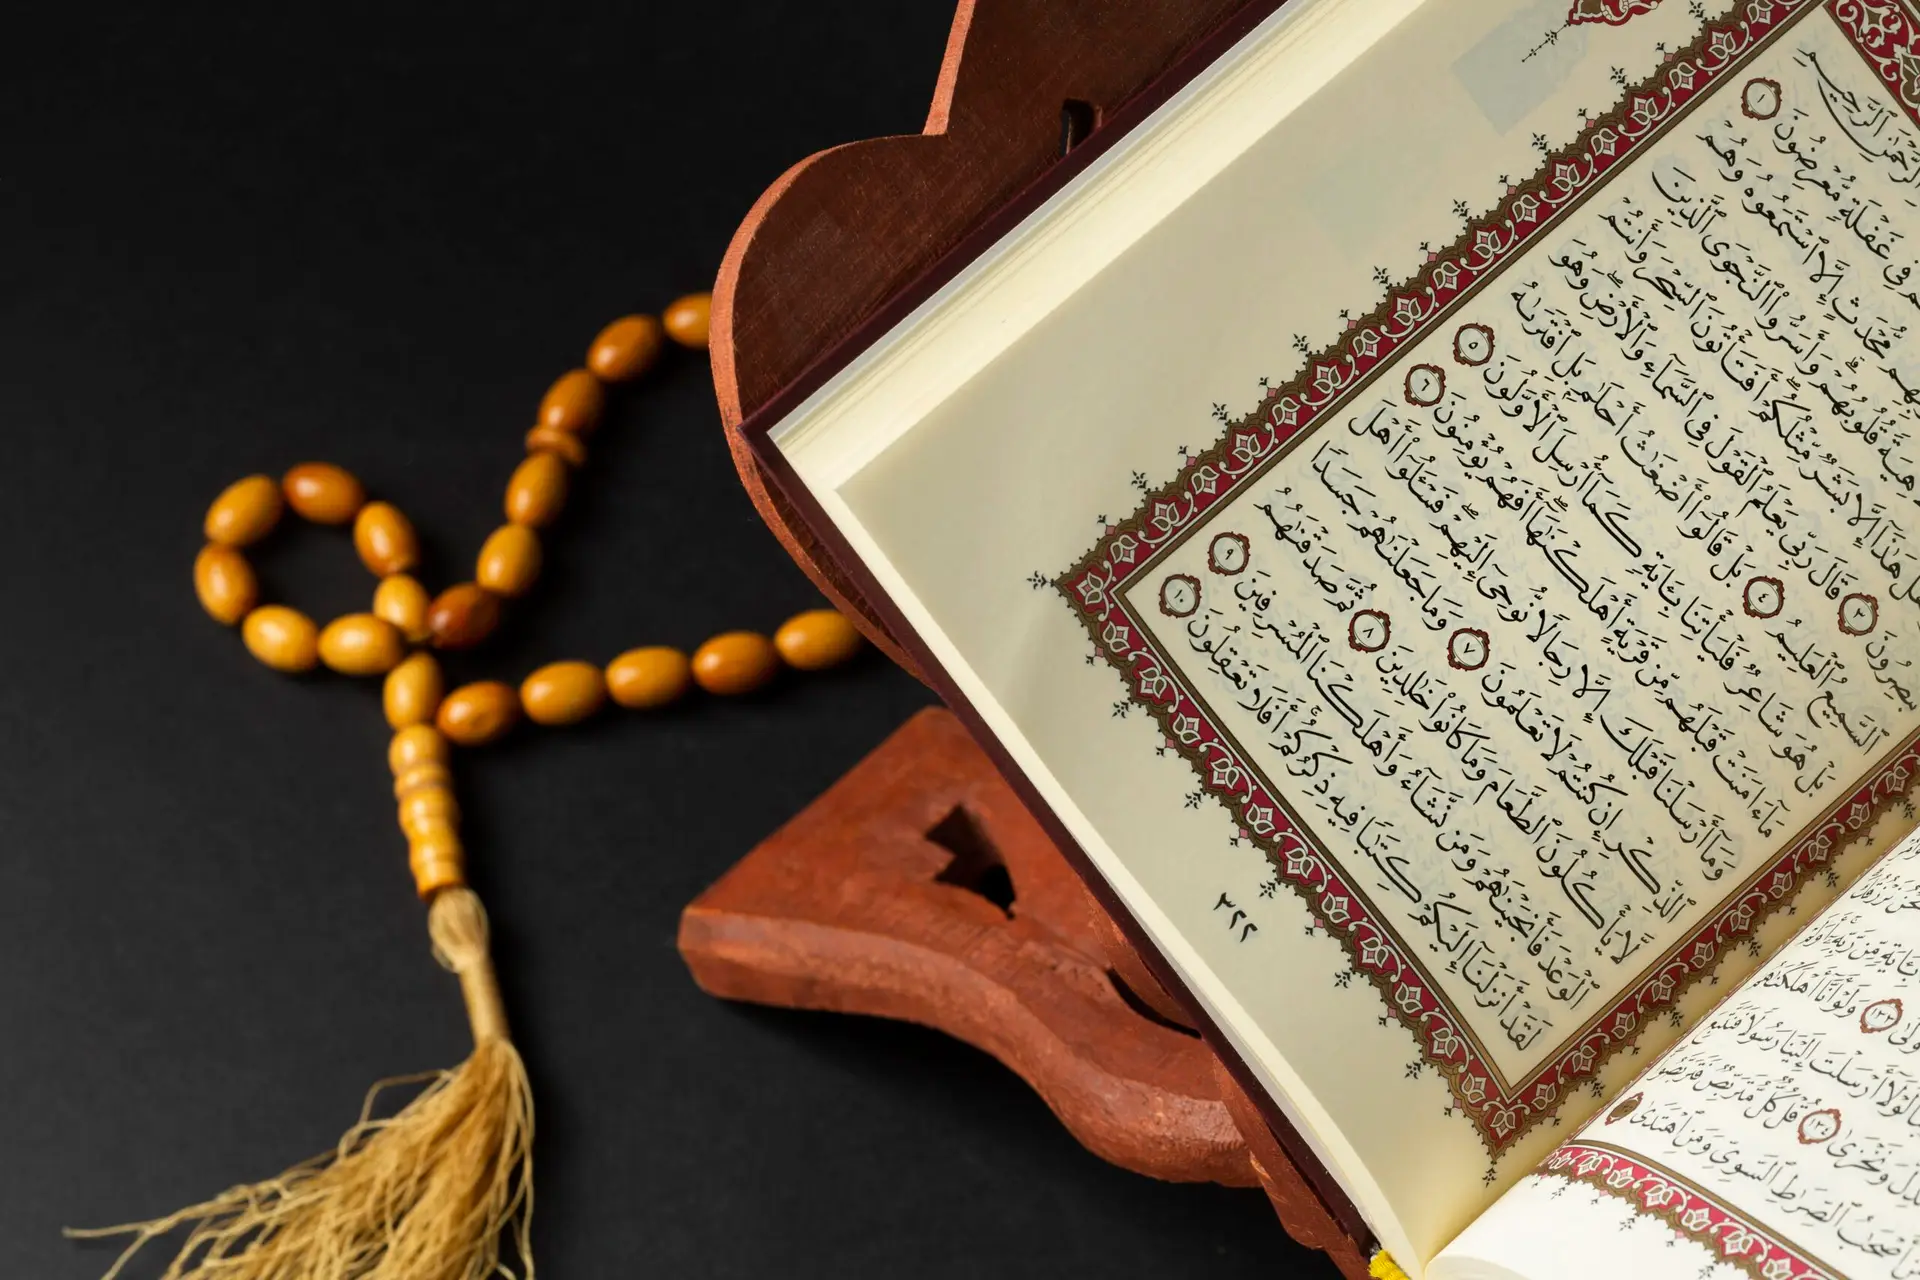 ٱلرَّحْمَٰنِ ٱلرَّحِيمِ
فِى غَفْلَةٍ مُّعْرِضُونَ ١
مُّحْدَثٍ إِلَّا ٱسْتَمَعُوهُ وَهُمْ
لَاهِيَةً قُلُوبُهُمْ ۗ وَأَسَرُّوا۟ ٱلنَّجْوَى ٱلَّذِينَ
هَلْ هَٰذَآ إِلَّا بَشَرٌ مِّثْلُكُمْ ۖ أَفَتَأْتُونَ ٱلسِّحْرَ وَأَنتُمْ
تُبْصِرُونَ ٣ قَالَ رَبِّى يَعْلَمُ ٱلْقَوْلَ فِى ٱلسَّمَآءِ وَٱلْأَرْضِ ۖ وَهُوَ
ٱلسَّمِيعُ ٱلْعَلِيمُ ٤ بَلْ قَالُوٓا۟ أَضْغَٰثُ أَحْلَٰمٍۭ بَلِ ٱفْتَرَىٰهُ
بَلْ هُوَ شَاعِرٌ فَلْيَأْتِنَا بِـَٔايَةٍ كَمَآ أُرْسِلَ ٱلْأَوَّلُونَ ٥
مَآ ءَامَنَتْ قَبْلَهُم مِّن قَرْيَةٍ أَهْلَكْنَٰهَآ ۖ أَفَهُمْ يُؤْمِنُونَ ٦
وَمَآ أَرْسَلْنَا قَبْلَكَ إِلَّا رِجَالًا نُّوحِىٓ إِلَيْهِمْ ۖ فَسْـَٔلُوٓا۟ أَهْلَ
ٱلذِّكْرِ إِن كُنتُمْ لَا تَعْلَمُونَ ٧ وَمَا جَعَلْنَٰهُمْ جَسَدًا
لَّا يَأْكُلُونَ ٱلطَّعَامَ وَمَا كَانُوا۟ خَٰلِدِينَ ٨ ثُمَّ صَدَقْنَٰهُمُ
ٱلْوَعْدَ فَأَنجَيْنَٰهُمْ وَمَن نَّشَآءُ وَأَهْلَكْنَا ٱلْمُسْرِفِينَ ٩
لَقَدْ أَنزَلْنَآ إِلَيْكُمْ كِتَٰبًا فِيهِ ذِكْرُكُمْ ۖ أَفَلَا تَعْقِلُونَ ١٠
٣٢٢
نَّحْنُ نَرْزُقُكَ
بِـَٔايَةٍ مِّن رَّبِّهِۦٓ ۚ أَوَلَمْ
١٣٣ وَلَوْ أَنَّآ أَهْلَكْنَٰهُم
لَوْلَآ أَرْسَلْتَ إِلَيْنَا رَسُولًا فَنَتَّبِعَ
وَنَخْزَىٰ ١٣٤ قُلْ كُلٌّ مُّتَرَبِّصٌ فَتَرَبَّصُوا۟
أَصْحَٰبُ ٱلصِّرَٰطِ ٱلسَّوِىِّ وَمَنِ ٱهْتَدَىٰ